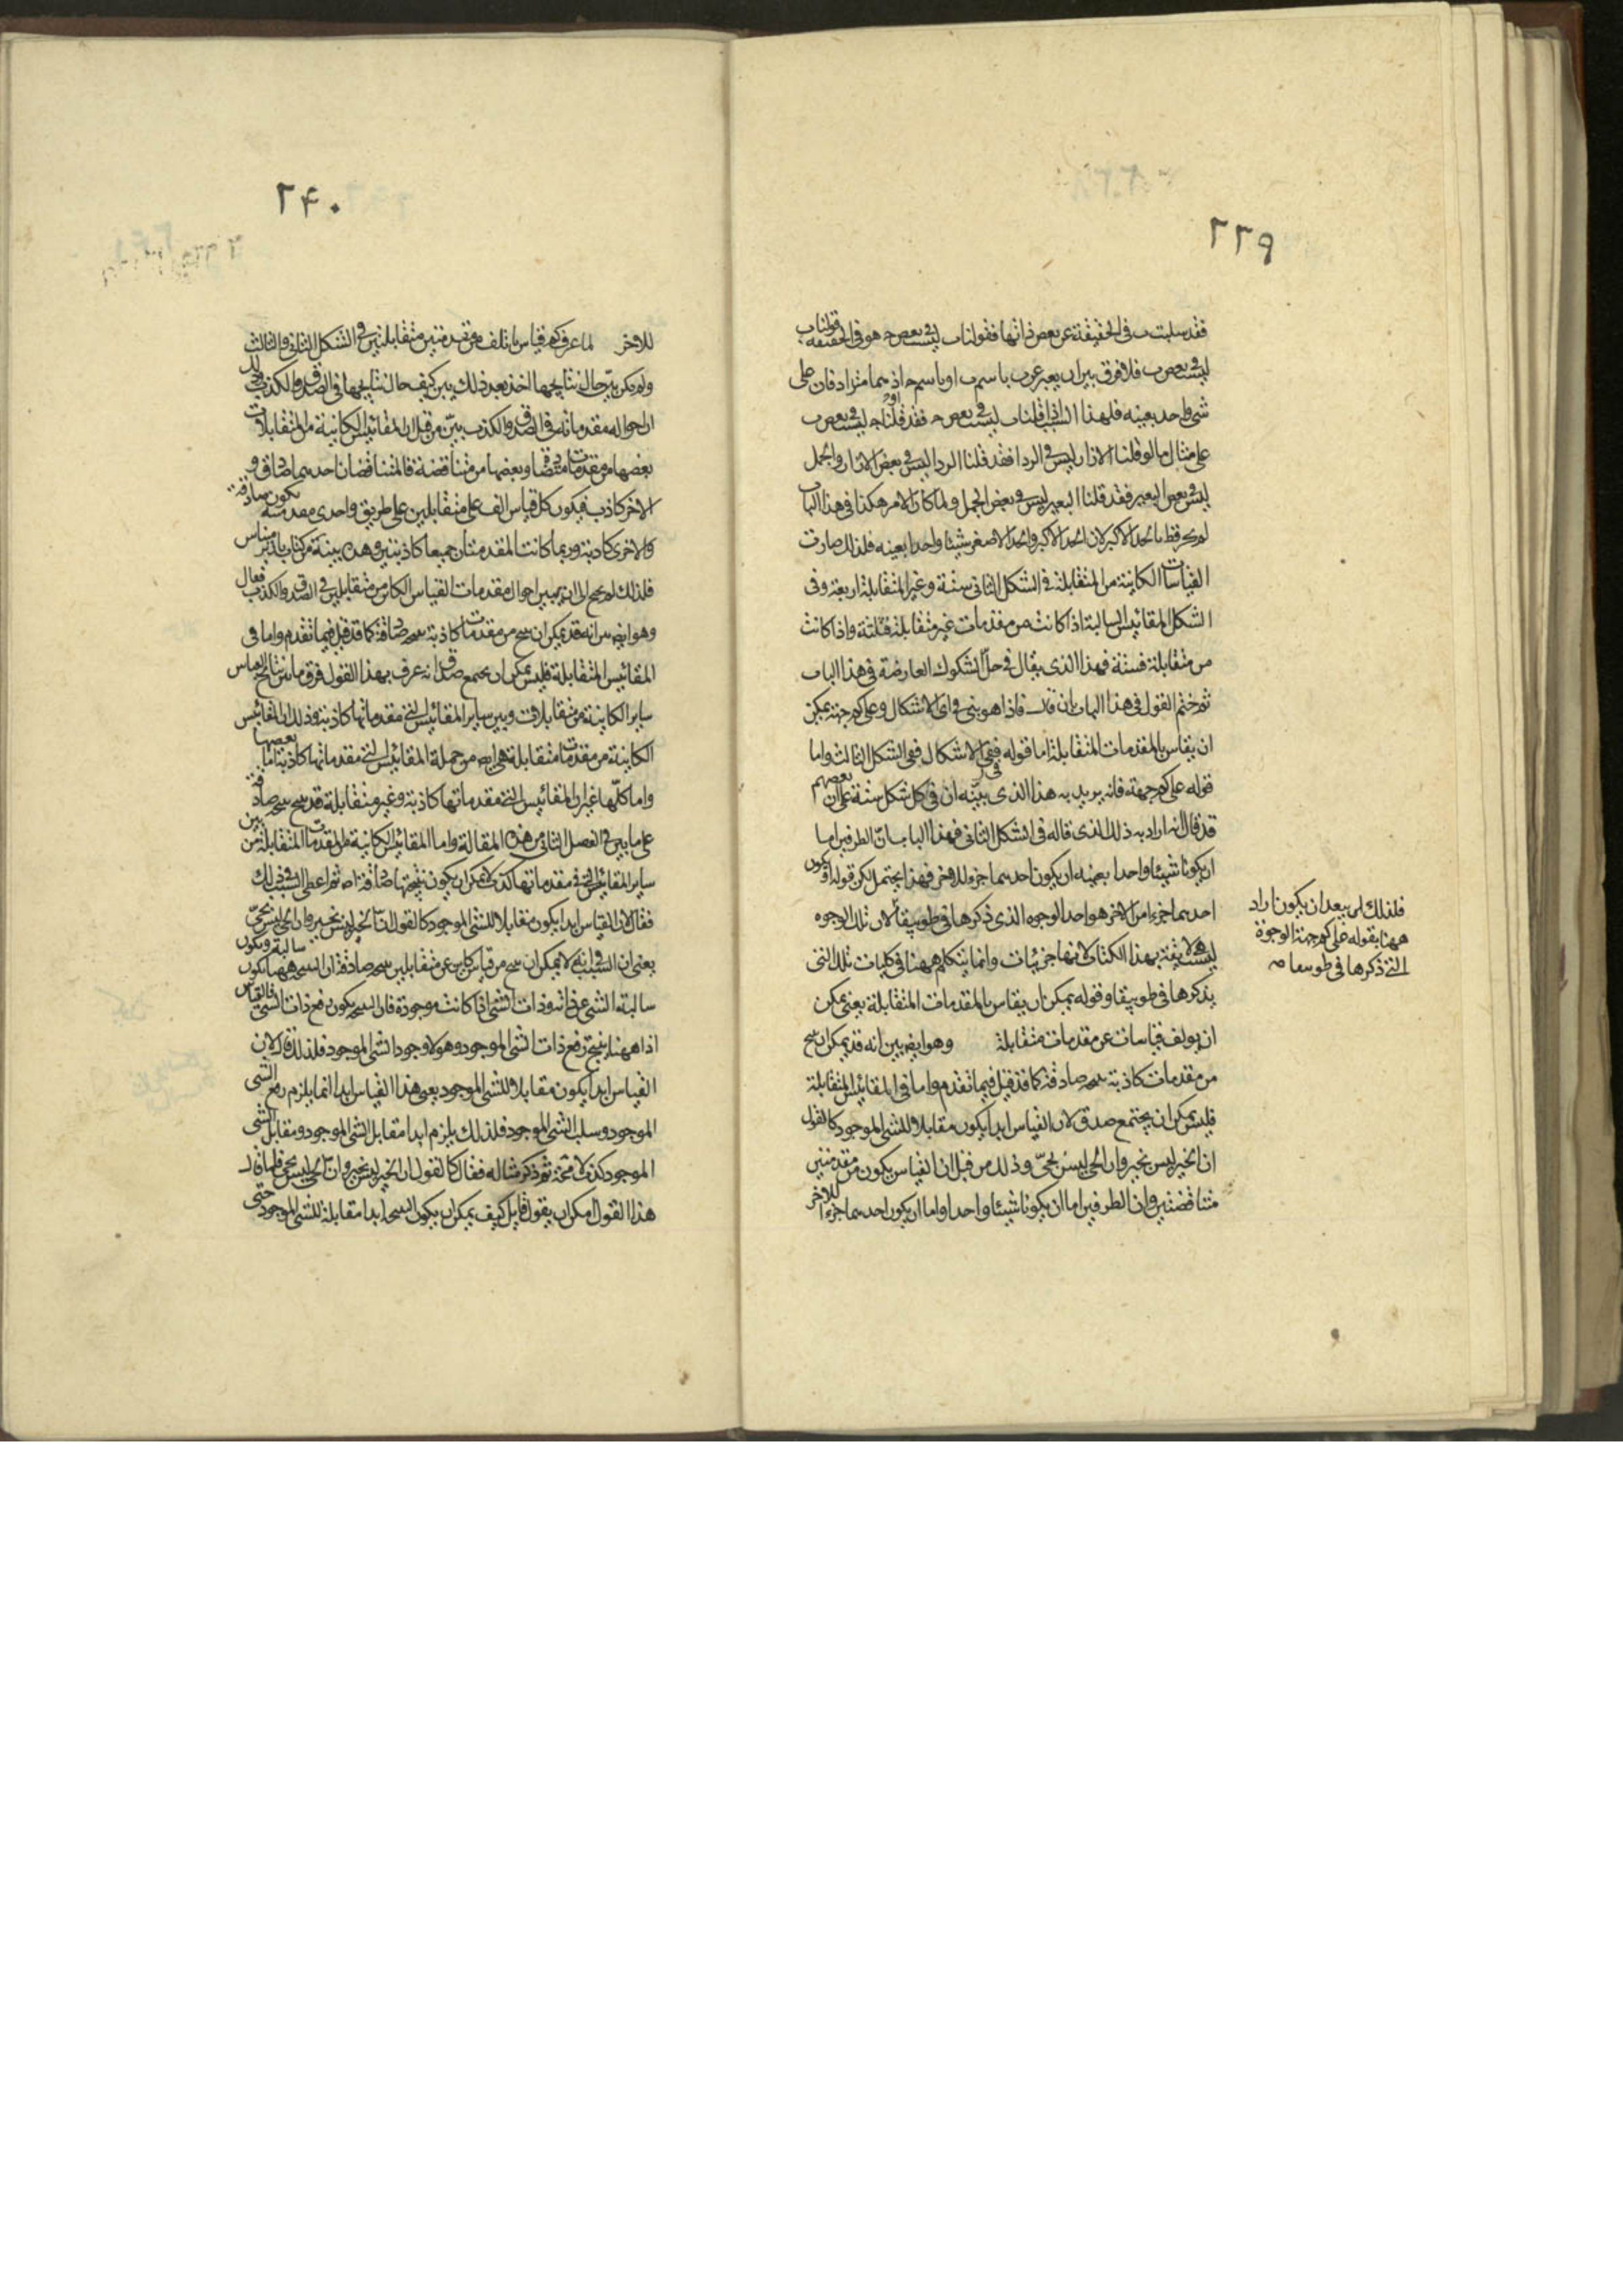 ٢٣٩
فقد سلبت ب فى الحقيقة عن بعض ذاتها فقولنا ب ليست فى بعض ح هو فى الحقيقة قولنا ب
ليست فى بعض ب فلا فرق بين ان يعبر عن ب باسم ب او باسم ح اذ هما مترادفان على
شى واحد بعينه فلهذا السبب اذا قلنا ب ليست فى بعض ح فقد قلنا ان ح ليست فى بعض ب
على مثال ما لو قلنا الازار ليس فى الردا فقد قلنا الردا ليس فى بعض الازار والجمل
ليس فى بعض البعير فقد قلنا البعير ليس فى بعض الجمل ولما كان الامر هكذا فى هذا الباب
لم يكن قط ما الحد الاكبر لان الحد الاكبر والحد الاصغر شيئا واحدا بعينه فلذلك صارت
القياسات الكاينة من المتقابلة فى الشكل الثانى ستة وغير المتقابلة اربعة وفى
الشكل المقائيس السالبة اذا كانت من مقدمات غير متقابلة فثلثة واذا كانت
من متقابلة فستة فهذا الذى يقال فى حل الشكوك العارضة فى هذا الباب
ثم ختم القول فى هذا الباب بان قال فاذا هو بين فى اى الاشكال وعلى كم جهة يمكن
ان يقاس بالمقدمات المتقابلة اما قوله فى اى الاشكال ففى الشكل الثالث واما
قوله على كم جهة فانه يريد به هذا الذى بينه ان فى كل شكل ستة على ان بعضهم
قد قال انه اراد به ذلك الذى قاله فى الشكل الثانى فهذا الباب ان الطرفين اما
ان يكونا شيئا واحدا بعينه او يكون احدهما جزء للاخر فهذا يحتمل لكن قوله او يكون
احدهما جزءا من الاخر هو احد الوجوه الذى ذكرها فى طوبيقا لان تلك الوجوه
ليست لايقة بهذا الكتاب لانها جزئيات وانما يتكلم ههنا فى كليات تلك التى
يذكرها فى طوبيقا وقوله يمكن ان يقاس بالمقدمات المتقابلة يعنى يمكن
ان يولف قياسات عن مقدمات متقابلة وهو ايضا بين انه قد يمكن ان ينتج
من مقدمات كاذبة نتيجة صادقة كما قد قيل فيما تقدم واما فى المقائيس المتقابلة
فليس يمكن ان يجتمع صدق لان القياس ابدا يكون مقابلا للشى الموجود كالقول
ان الخير ليس بخير وان الحى ليس بحى وذلك من قبل ان القياس يكون من مقدمتين
متناقضتين وان الطرفين اما ان يكونا شيئا واحدا واما ان يكون احدهما جزءا للاخر
فلذلك لن يبعد ان يكون اراد
ههنا بقوله على كم جهة الوجوه
التى ذكرها فى طوبيقا صح
٢۴٠
للاخر لما عرف كم قياس ياتلف من مقدمتين متقابلتين فى الشكل الثانى والثالث
ولم يكن بين حال نتايجها اخذ بعد ذلك يبين كيف حال نتايجها فى الصدق والكذب
ان احوال مقدماته فى الصدق والكذب بين من قبل ان المقائيس الكاينة من المتقابلات
بعضها من مقدمات متضادة وبعضها من متناقضة فالمتناقضان احدهما صادق و
الاخر كاذب فيكون كل قياس الف على متقابلين على طريق واحدى مقدمتيه يكون صادقة
والاخرى كاذبة وربما كانت المقدمتان جميعا كاذبتين وهذه بينة من كتاب
فلذلك لم يحتج الى ان يبين احوال مقدمات القياس الكاين من متقابلين فى الصدق والكذب فقال
وهو ايضا بين انه قد يمكن ان ينتج من مقدمات كاذبة نتيجة صادقة كما قد قيل فيما تقدم واما فى
المقائيس المتقابلة فليس يمكن ان يجتمع صدق انه عرف بهذا القول فرق ما بين نتايج القياس
ساير الكاينة من متقابلات وبين ساير المقائيس التى مقدماتها كاذبة وذلك ان المقائيس
الكاينة من مقدمات متقابلة هى ايضا من جملة المقائيس التى مقدماتها كاذبة اما بعضها
واما كلها غير ان المقائيس التى مقدماتها كاذبة وغير متقابلة قد ينتج نتيجة صادقة
على ما بين فى الفصل الثانى من هذه المقالة واما المقائيس الكاينة من المقدمات المتقابلة من بين
ساير المقائيس التى فى مقدماتها كذب لا يمكن ان يكون نتيجتها صادقة ثم اعطى السبب فى ذلك
فقال لان القياس ابدا يكون مقابلا للشى الموجود كالقول ان الخير ليس بخير وان الحى ليس بحى
يعنى ان السبب فى انه لا يمكن ان ينتج من قياس كاين عن متقابلين نتيجة صادقة ان النتيجة ههنا تكون سالبة وتكون
سالبة الشى عن ذاته وذات الشى اذا كانت موجودة فان النتيجة يكون رفع ذات الشى فالقياس
اذا ههنا ينتج رفع ذات الشى الموجود وهو لا وجود الشى الموجود فلذلك قال لان
القياس ابدا يكون مقابلا للشى الموجود يعنى هذا القياس ابدا انما يلزم رفع الشى
الموجود وسلب الشى الموجود فلذلك يلزم ابدا مقابل الشى الموجود ومقابل الشى
الموجود كذب لا محة ثم ذكر مثاله فقال كالقول ان الخير ليس بخير وان الحى ليس بحى فلما قال
هذا القول امكن ان يقول قايل كيف يمكن ان يكون النتيجة ابدا مقابلة للشى الموجود حتى